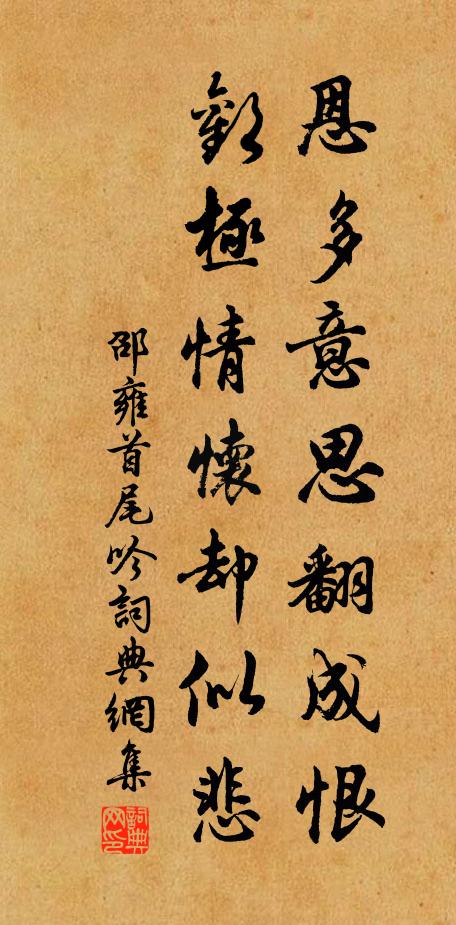 恩多意思翻成恨
歡極情懷却似悲
邵雍首尾吟詞典網集
詞典網印